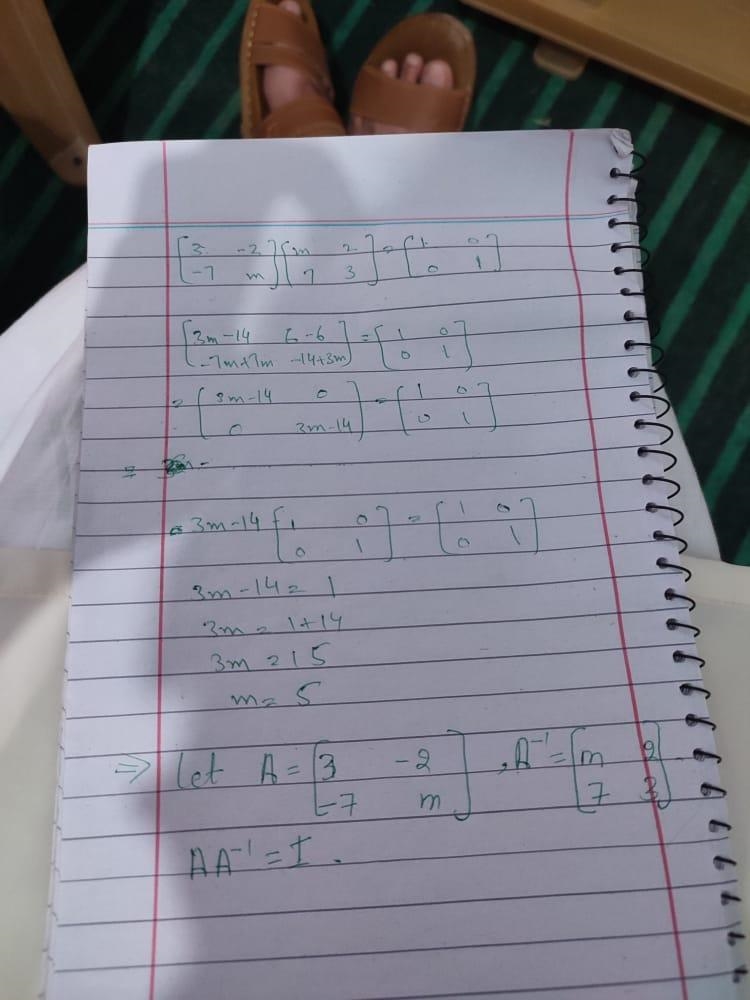 [3 -2; -7 m] [m 2; 7 3] = [1 0; 0 1]
[3m-14 6-6; -7m+7m -14+3m] = [1 0; 0 1]
= [3m-14 0; 0 3m-14] = [1 0; 0 1]
=
3m-14 [1 0; 0 1] = [1 0; 0 1]
3m-14 = 1
3m = 1+14
3m = 15
m = 5
⇒ Let A = [3 -2; -7 m], A⁻¹ = [m 2; 7 3]
AA⁻¹ = I.